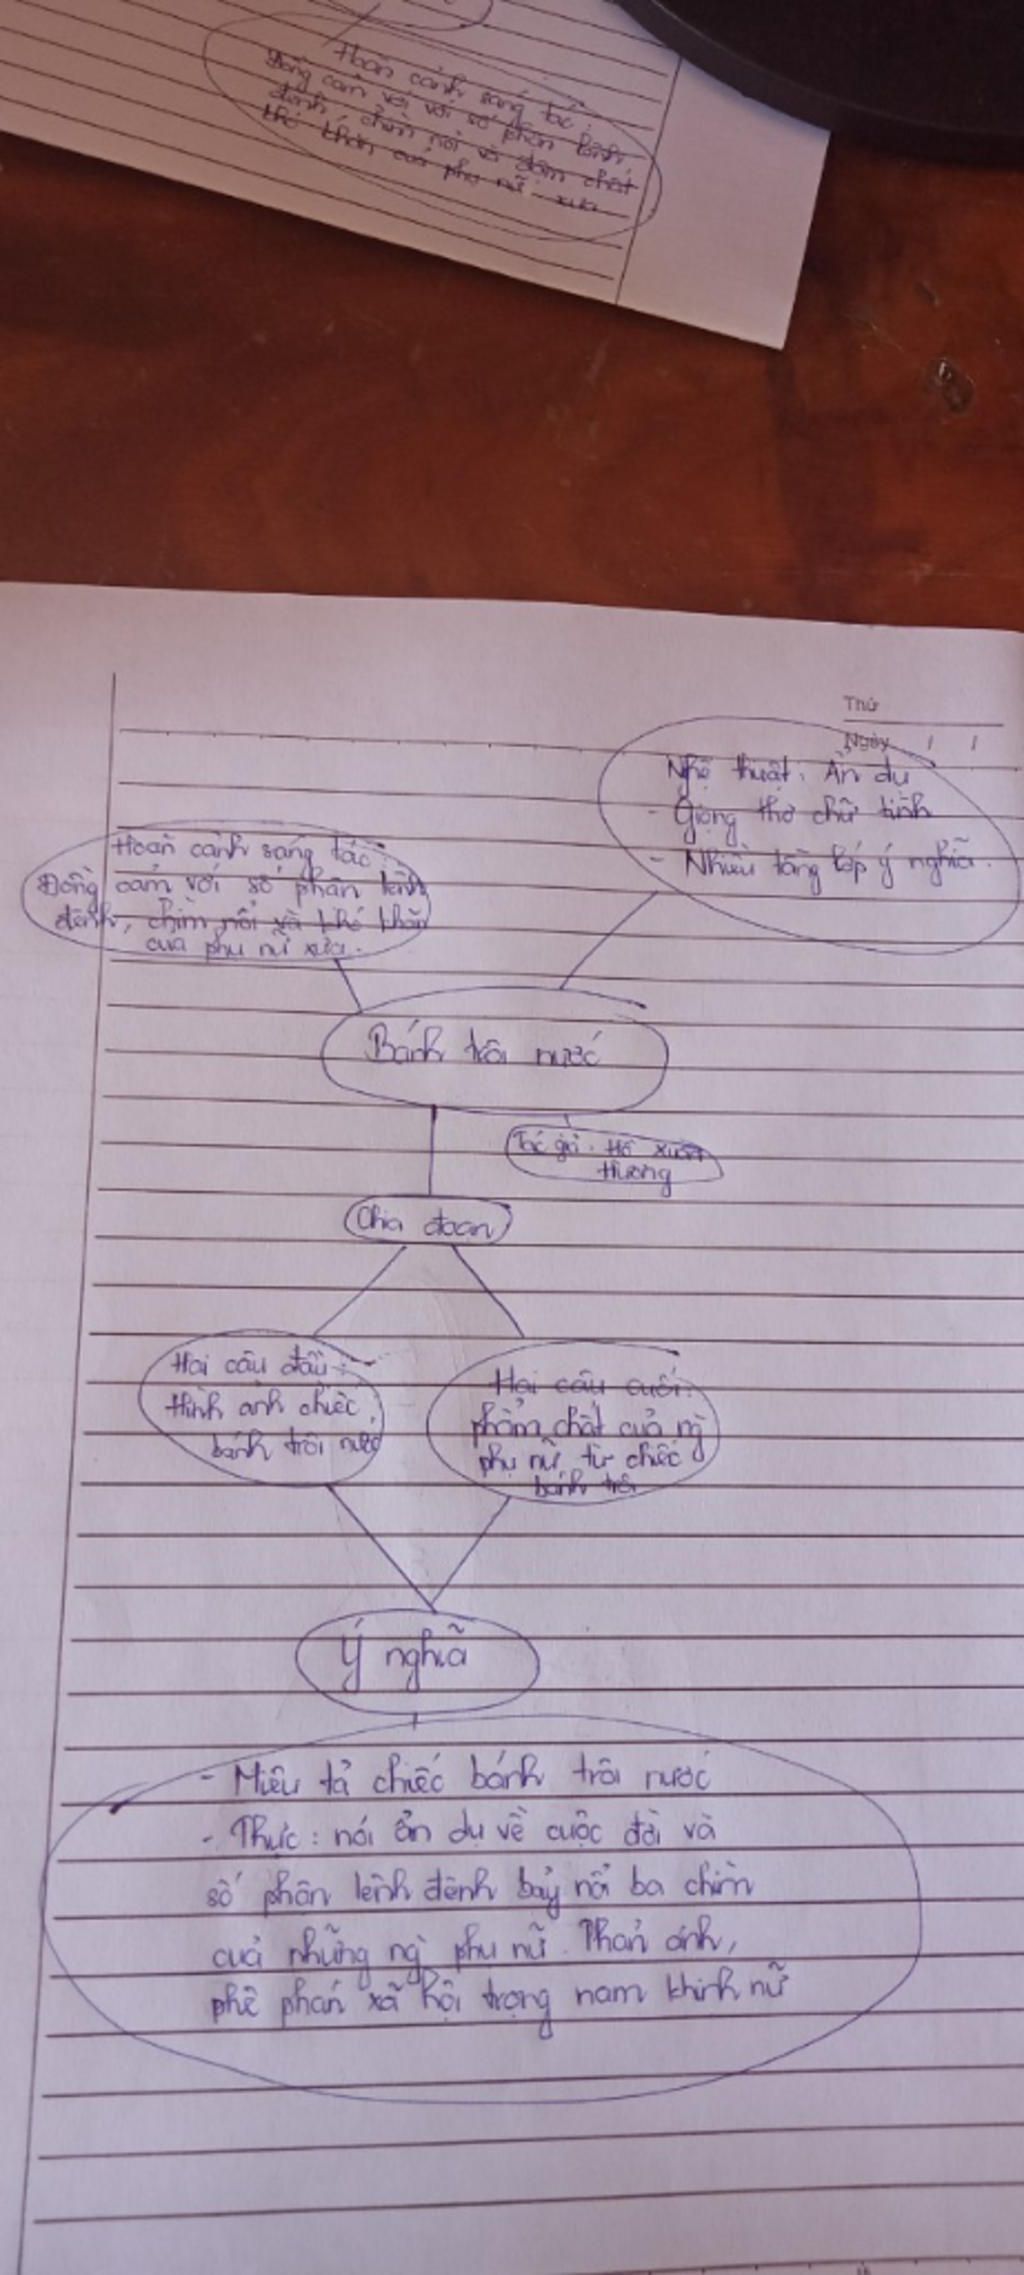 Hoàn cảnh sáng tác:
Đồng cảm với với số phận lênh
đênh, chìm nổi và đậm chất
khó khăn của phụ nữ xưa
Thứ
Ngày / /
Nghệ thuật: Ẩn dụ
- Giọng thơ chữ tình
- Nhiều tầng lớp ý nghĩa.
Hoàn cảnh sáng tác:
Đồng cảm với số phận lênh
đênh, chìm nổi và khó khăn
của phụ nữ xưa.
Bánh trôi nước
Tác giả: Hồ Xuân
Hương
Chia đoạn
Hai câu đầu:
Hình ảnh chiếc
bánh trôi nước
Hai câu cuối:
phẩm chất của ng`
phụ nữ từ chiếc
bánh trôi
Ý nghĩa
- Miêu tả chiếc bánh trôi nước
- Thực: nói ẩn dụ về cuộc đời và
số phận lênh đênh bảy nổi ba chìm
của những ng` phụ nữ. Phản ánh,
phê phán xã hội trọng nam khinh nữ